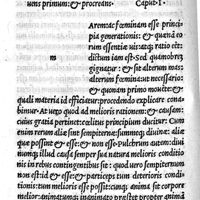 uens primum: & procreans. Caput I.
Aremac fœminam esse princi
pia generationis: & quænā eo
rum essentia uis atq; ratio cę
m dictum iam est. Sed quamobrē
gignatur: & sit alterum mas
alterum fœmina: ut necessario:
& quonam primo mouēte: &
quali materia id efficiatur: procedendo explicare cona
bimur. At uero quod ad melioris rationem: & causam:
cuius gratia pertinet: cœlitus principium ducitur. Cum
enim rerum aliæ sint sempiternæ: summęq; diuinæ: aliæ
quæ possint & esse: & non esse: Pulchrum autem: diui
numq; illud causa semper sua natura melioris conditio
nis in rebus contingentibus sit: quod uero sempiternum
non est id & esse: & particeps tum deterioris conditi
onis: tum melioris esse possit: cumq; anima sit corpore
melior: & animatum inanimato præstet propter animā